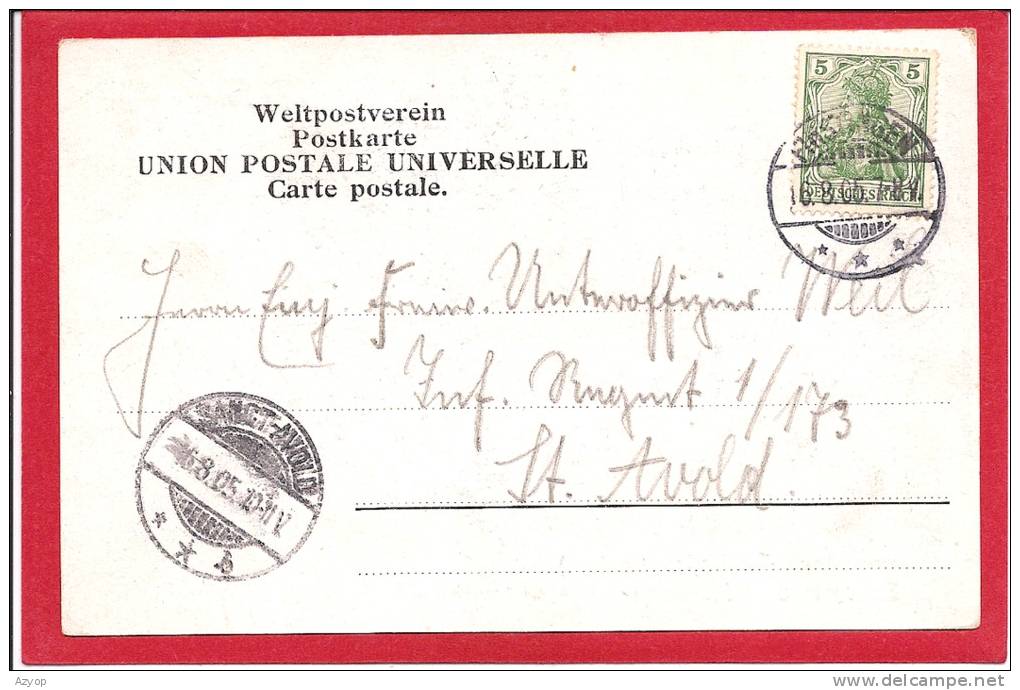 Weltpostverein
Postkarte
UNION POSTALE UNIVERSELLE
Carte postale.
5 5
DEUTSCHES REICH
6.8.05.
Herrn Einj. Freiw. Unteroffizier Weil
Inf. Regmt 1/173
St. Avold.
SANCT-AVOLD
6.8.05.
b
Azyop
www.delcampe.net